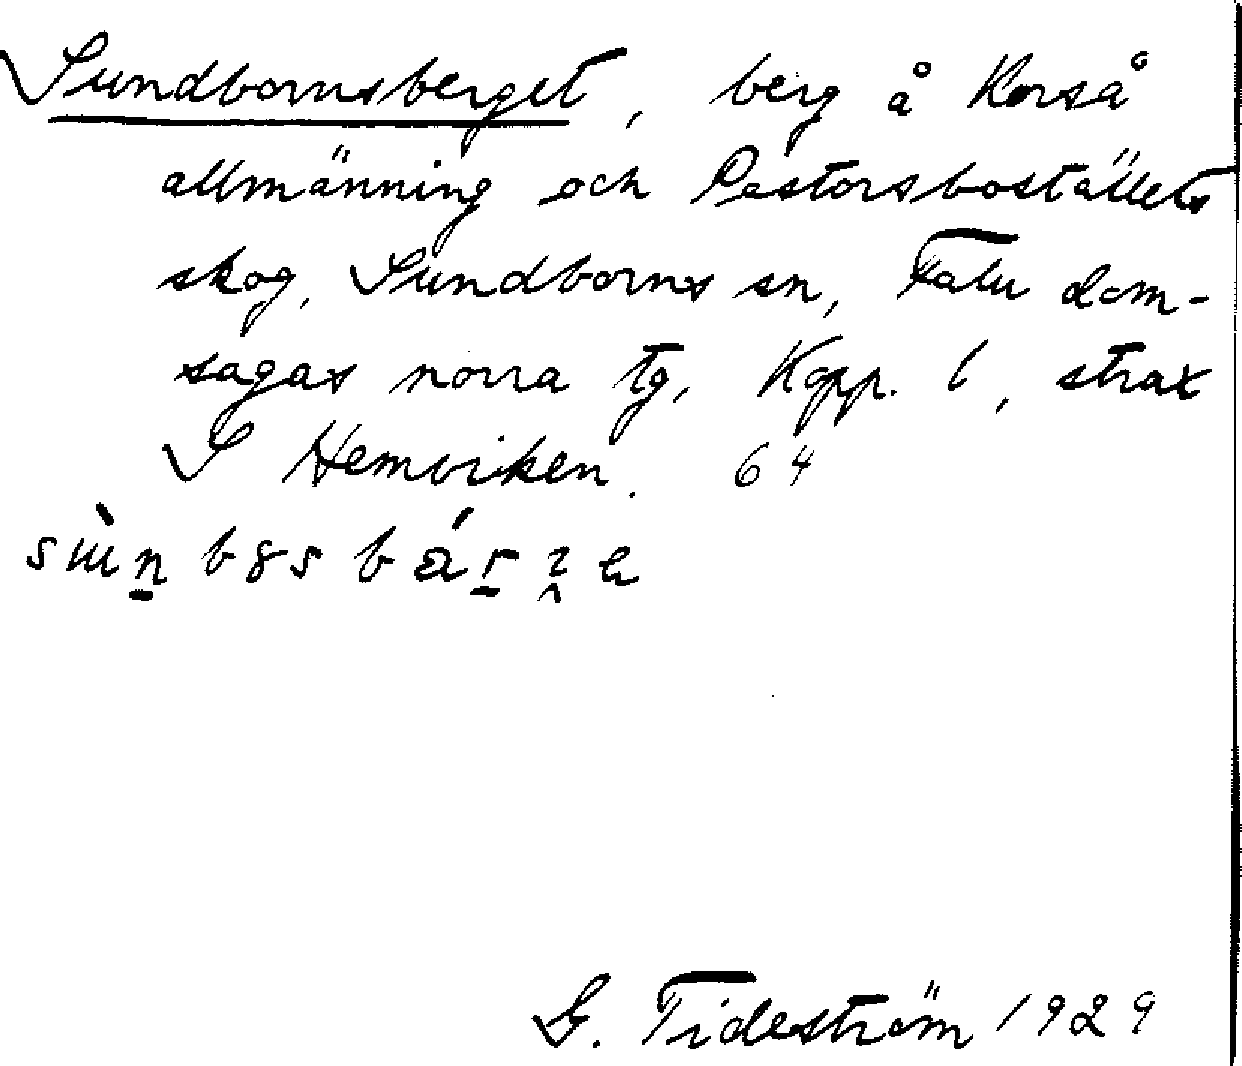 Sundbornsberget, berg å Korså
allmänning och Pastorsboställets
skog, Sundborns sn, Falu dom-
sagas norra tg, Kopp. l, strax
S Hemviken. 64
G. Tideström 1929